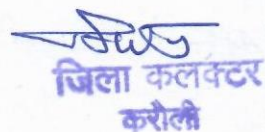 जिला कलक्टर
करौली